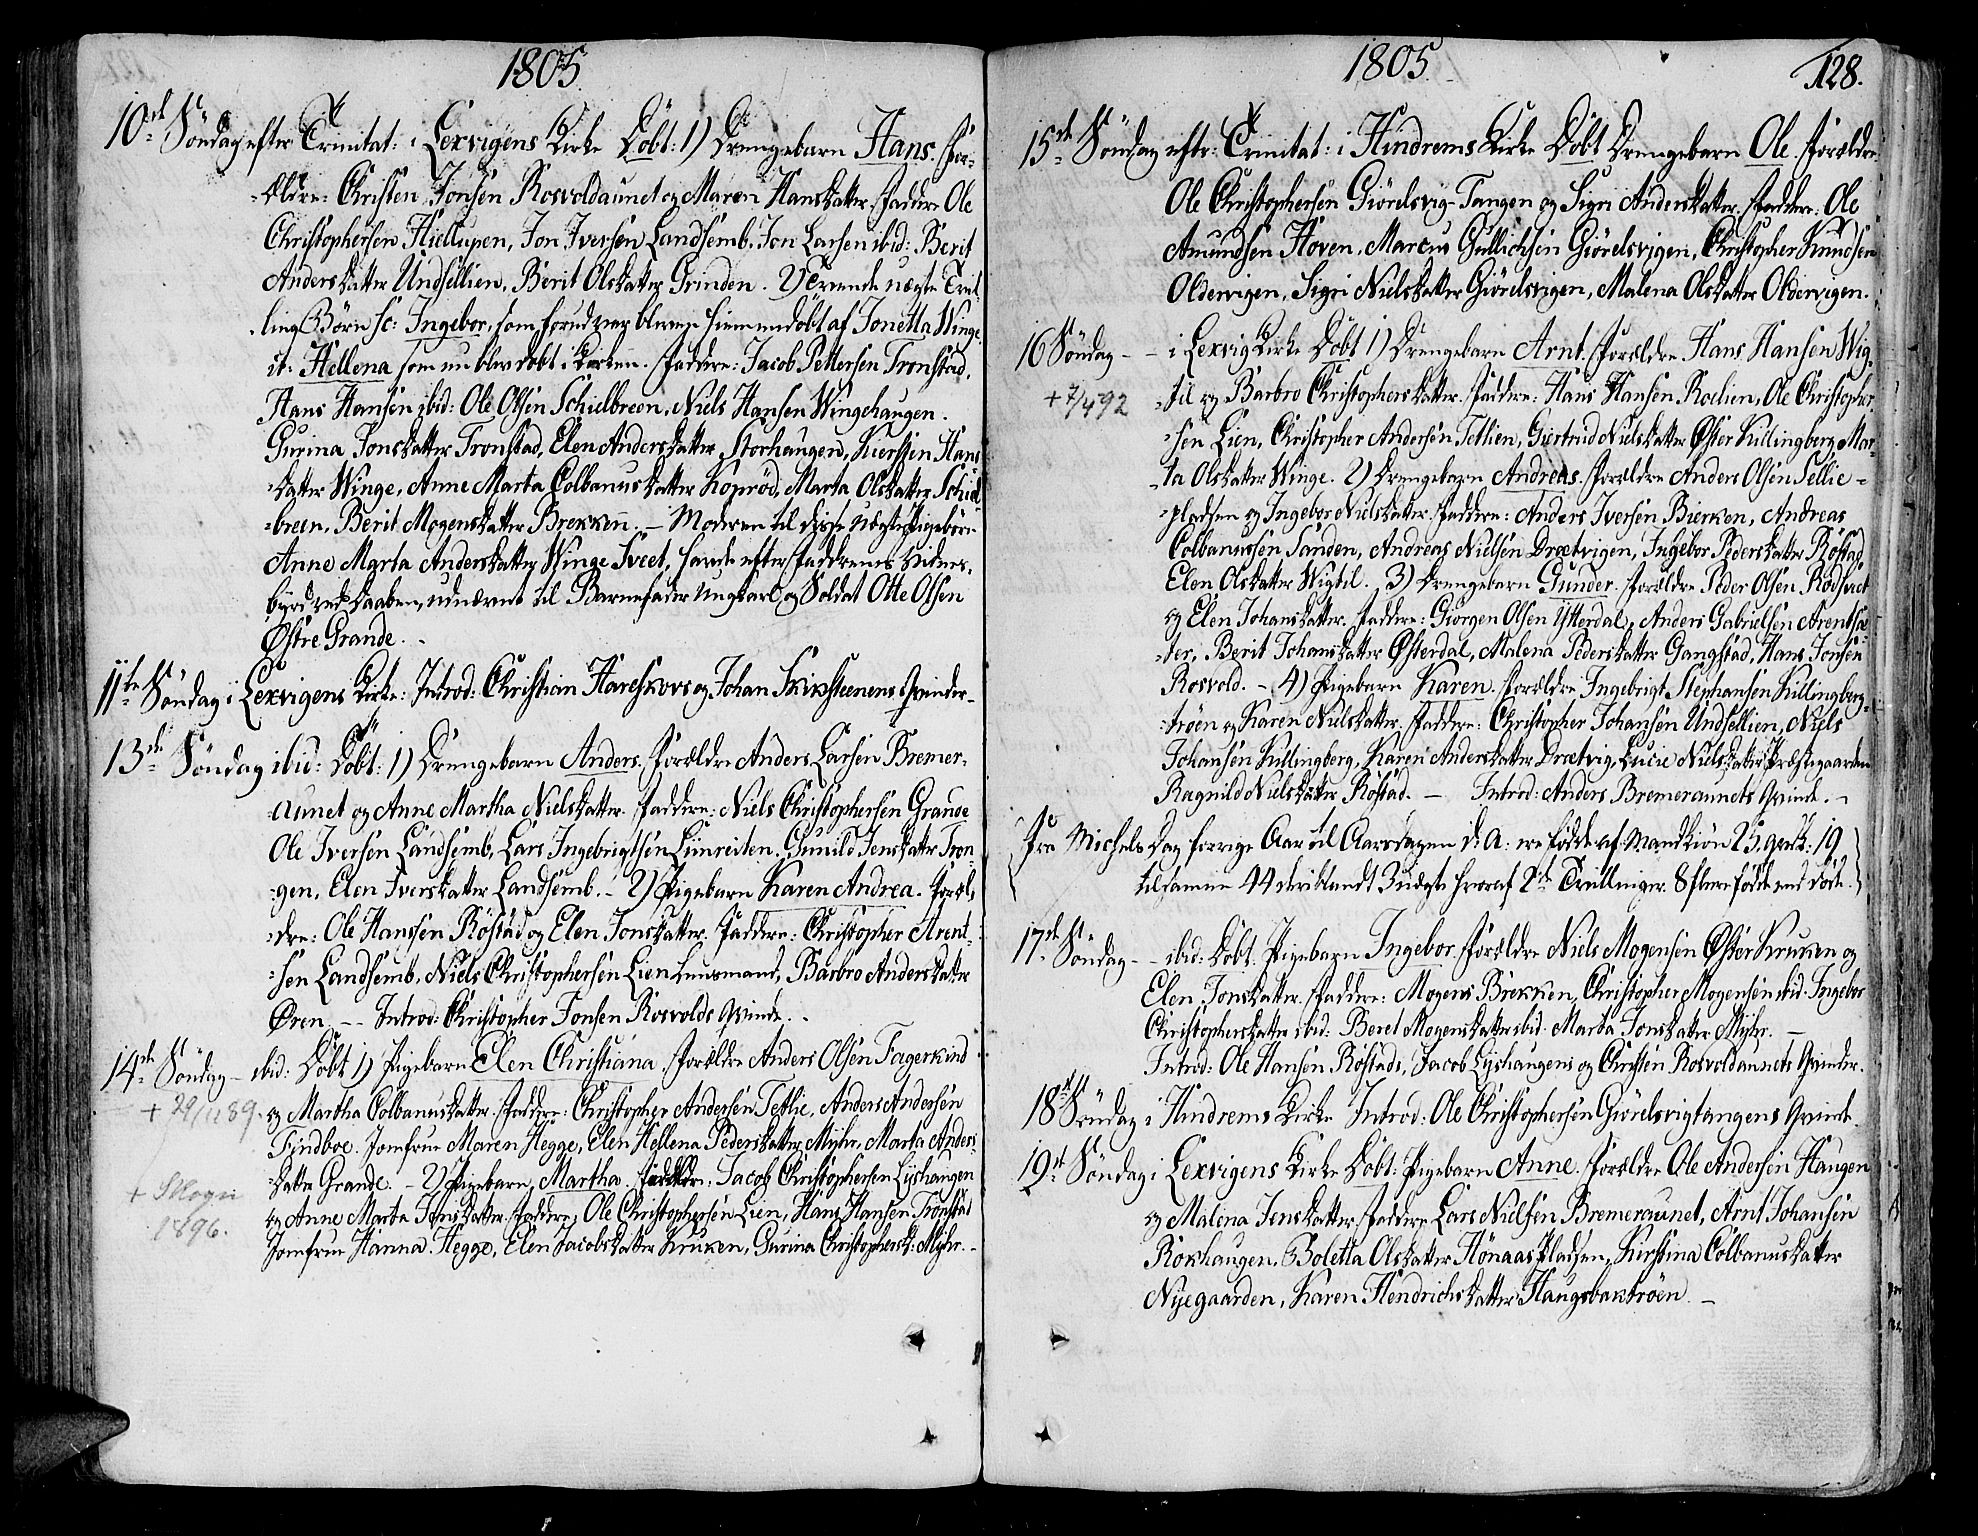 1805.
10de Söndag efter Trinitat: i Lexvigens Kirke Döbt: 1) Drengebarn Hans. For-
-ældre: Christen Jonsen Rosvoldaunet og Maren Hansdatter. Faddere Ole
Christophersen Hiellupen, Jon Iversen Landsemb. Jon Larsen ibid: Berit
Andersdatter Undsellien, Berit Olsdatter Grinden. 2) Tvende uægte Tvil-
ling Börn sc: Ingebor, som forud var bleven hiemmedöbt af Jonetta Winge
it: Hellena som nu blev döbt i Kirken. Faddere: Jacob Pettersen Tronstad,
Hans Hansen ibid: Ole Olsen Schielbreen, Niels Hansen Wingehaugen.
Gurina Jonsdatter Tronstad, Elen Andersdatter Storhaugen, Kierstin Hans
-datter Winge, Anne Marta Colbanusdatter Kopröd, Marta Olsdatter Schiel-
-breen. Berit Mogensdatter Brekken. – Moderen til disse uægte Pigebörn
Anne Marta Andersdatter Winge Sveet, havde efter Faddernes Vidnes-
byrd ved Daaben, udnævnt til Barnefader ungkarl og Soldat Otte Olsen
Østre Grande. -
11te Söndag i Lexvigens Kirke: Introd: Christian Hareskovs og Johan Skiksteenens Qvinder-
13de Söndag ibid: Döbt: 1) Drengebarn Anders. Forældre Anders Larsen Bremer-
-aunet og Anne Martha Nielsdatter. Faddere: Niels Christophersen Grande
Ole Iversen Landsemb, Lars Ingebrigtsen Limreiten. Gunild Jensdatter Tron-
-gen, Elen Iversdatter Landsemb. – 2) Pigebarn Karen Andrea. Foræl-
-dre: Ole Hanssen Röstad og Elen Jonsdatter. Faddere: Christopher Arent-
-sen Landsemb, Niels Christophersen Lien Lensmand, Barbro Andersdatter
Ören. – – Introd: Christopher Jonsen Rosvolds Qvinde. -
14de Söndag – ibid: Döbt 1) Pigebarn Elen Christiana. Forældre Anders Olsen Fagerkind
+ 29/11 89.
og Martha Colbanusdatter. Faddere: Christopher Andersen Tetlie, Anders Andersen
Findboe. Jomfrue Maren Hegge, Elen Hellena Pedersdatter Myhr, Marta Anders-
-datter Grande. – 2) Pigebarn Martha. Forældre: Jacob Christophersen Lyshaugen
+ Skogn
og Anne Marta Jonsdatter. Faddere: Ole Christophersen Lien, Hans Hansen Tronstad
1896.
Jomfrue Hanna Hegge, Elen Jacobsdatter Kruken, Gurina Christophersd: Myhr. -
1805.
128.
15de Söndag eftr: Trinitat: i Hindrems Kirke Döbt Drengebarn Ole. Forældre
Ole Christophersen Giörelsvig-Tangen og Sigri Andersdatter. Faddere: Ole
Amundsen Hoven, Marcus Gullichsen Giörelsvigen, Christopher Knudsen
Oldervigen, Sigri Nielsdatter Giörelsvigen, Malena Olsdatter Oldervigen.
16 Söndag – – i Lexvig Kirke Döbt 1) Drengebarn Arnt. Forældre Hans Hansen Wig-
+ 7/4 92
-til og Barbro Christophersdatter. Faddere: Hans Hansen Roelien, Ole Christopher-
-sen Lien, Christopher Andersen Tetlien, Giertrud Nielsdatter Öster Killingberg, Mar-
-ta Olsdatter Winge. 2) Drengebarn Andreas. Forældre Anders Olsen Sellie-
-pladsen og Ingebor Nielsdatter. Faddere: Anders Iversen Bierken, Andreas
Colbanussen Sanden, Andreas Nielsen Drætvigen, Ingebor Pedersdatter Röstad,
Elen Olsdatter Wigtil. 3) Drengebarn Gunder. Forældre Peder Olsen Rödsvet
og Elen Johansdatter. Faddere: Giörgen Olsen Ytterdal, Anders Gabrielsen Arentsæ-
-ter, Berit Johansdatter Østerdal, Malena Pedersdatter Gangstad, Hans Jonsen
Rosvold. – 4) Pigebarn Karen. Forældre Ingebrigt Stephansen Killingberg-
-tröen og Karen Nielsdatter. Faddere: Christopher Johansen Undsellien, Niels
Johansen Killingberg, Karen Andersdatter Drætvig, Lucie Nielsdatter Præstegaarden
Ragnild Nielsdatter Röstad. – Introd: Anders Bremeraunets Qvinde. -
Fra Michels Dag forrige Aar til Aarsdagen d: A: ere födde af Mandkiön 25, qvindk: 19
tilsamen 44 deriblandt 3 uægte hvoraf 2de Tvillinger. 8 flere födde end döde.
17de Söndag – – ibid: Döbt Pigebarn Ingebor. Forældre Niels Mogensen Öster Kruken og
Elen Jonsdatter. Faddere: Mogens Brekken, Christopher Mogensen ibid: Ingebor
Christophersdatter ibid: Beret Mogensdatter ibid: Marta Jonsdatter Myhr. –
Introd: Ole Hansen Röstads, Jacob Lyshaugens og Christen Rosvoldaunets Qvinder.
18de Söndag i Hindrems Kirke Introd: Ole Christophersen Giörelsvigtangens Qvinde.
19de Söndag i Lexvigens Kirke Döbt: Pigebarn Anne. Forældre Ole Andersen Haugen
og Malena Jensdatter. Faddere Lars Nielsen Bremeraunet, Arnt Johansen
Rokhaugen, Boletta Olsdatter Hönaaspladsen, Kirstina Colbanusdatter
Nyegaarden, Karen Hendrichsdatter Haugsbaktröen. –